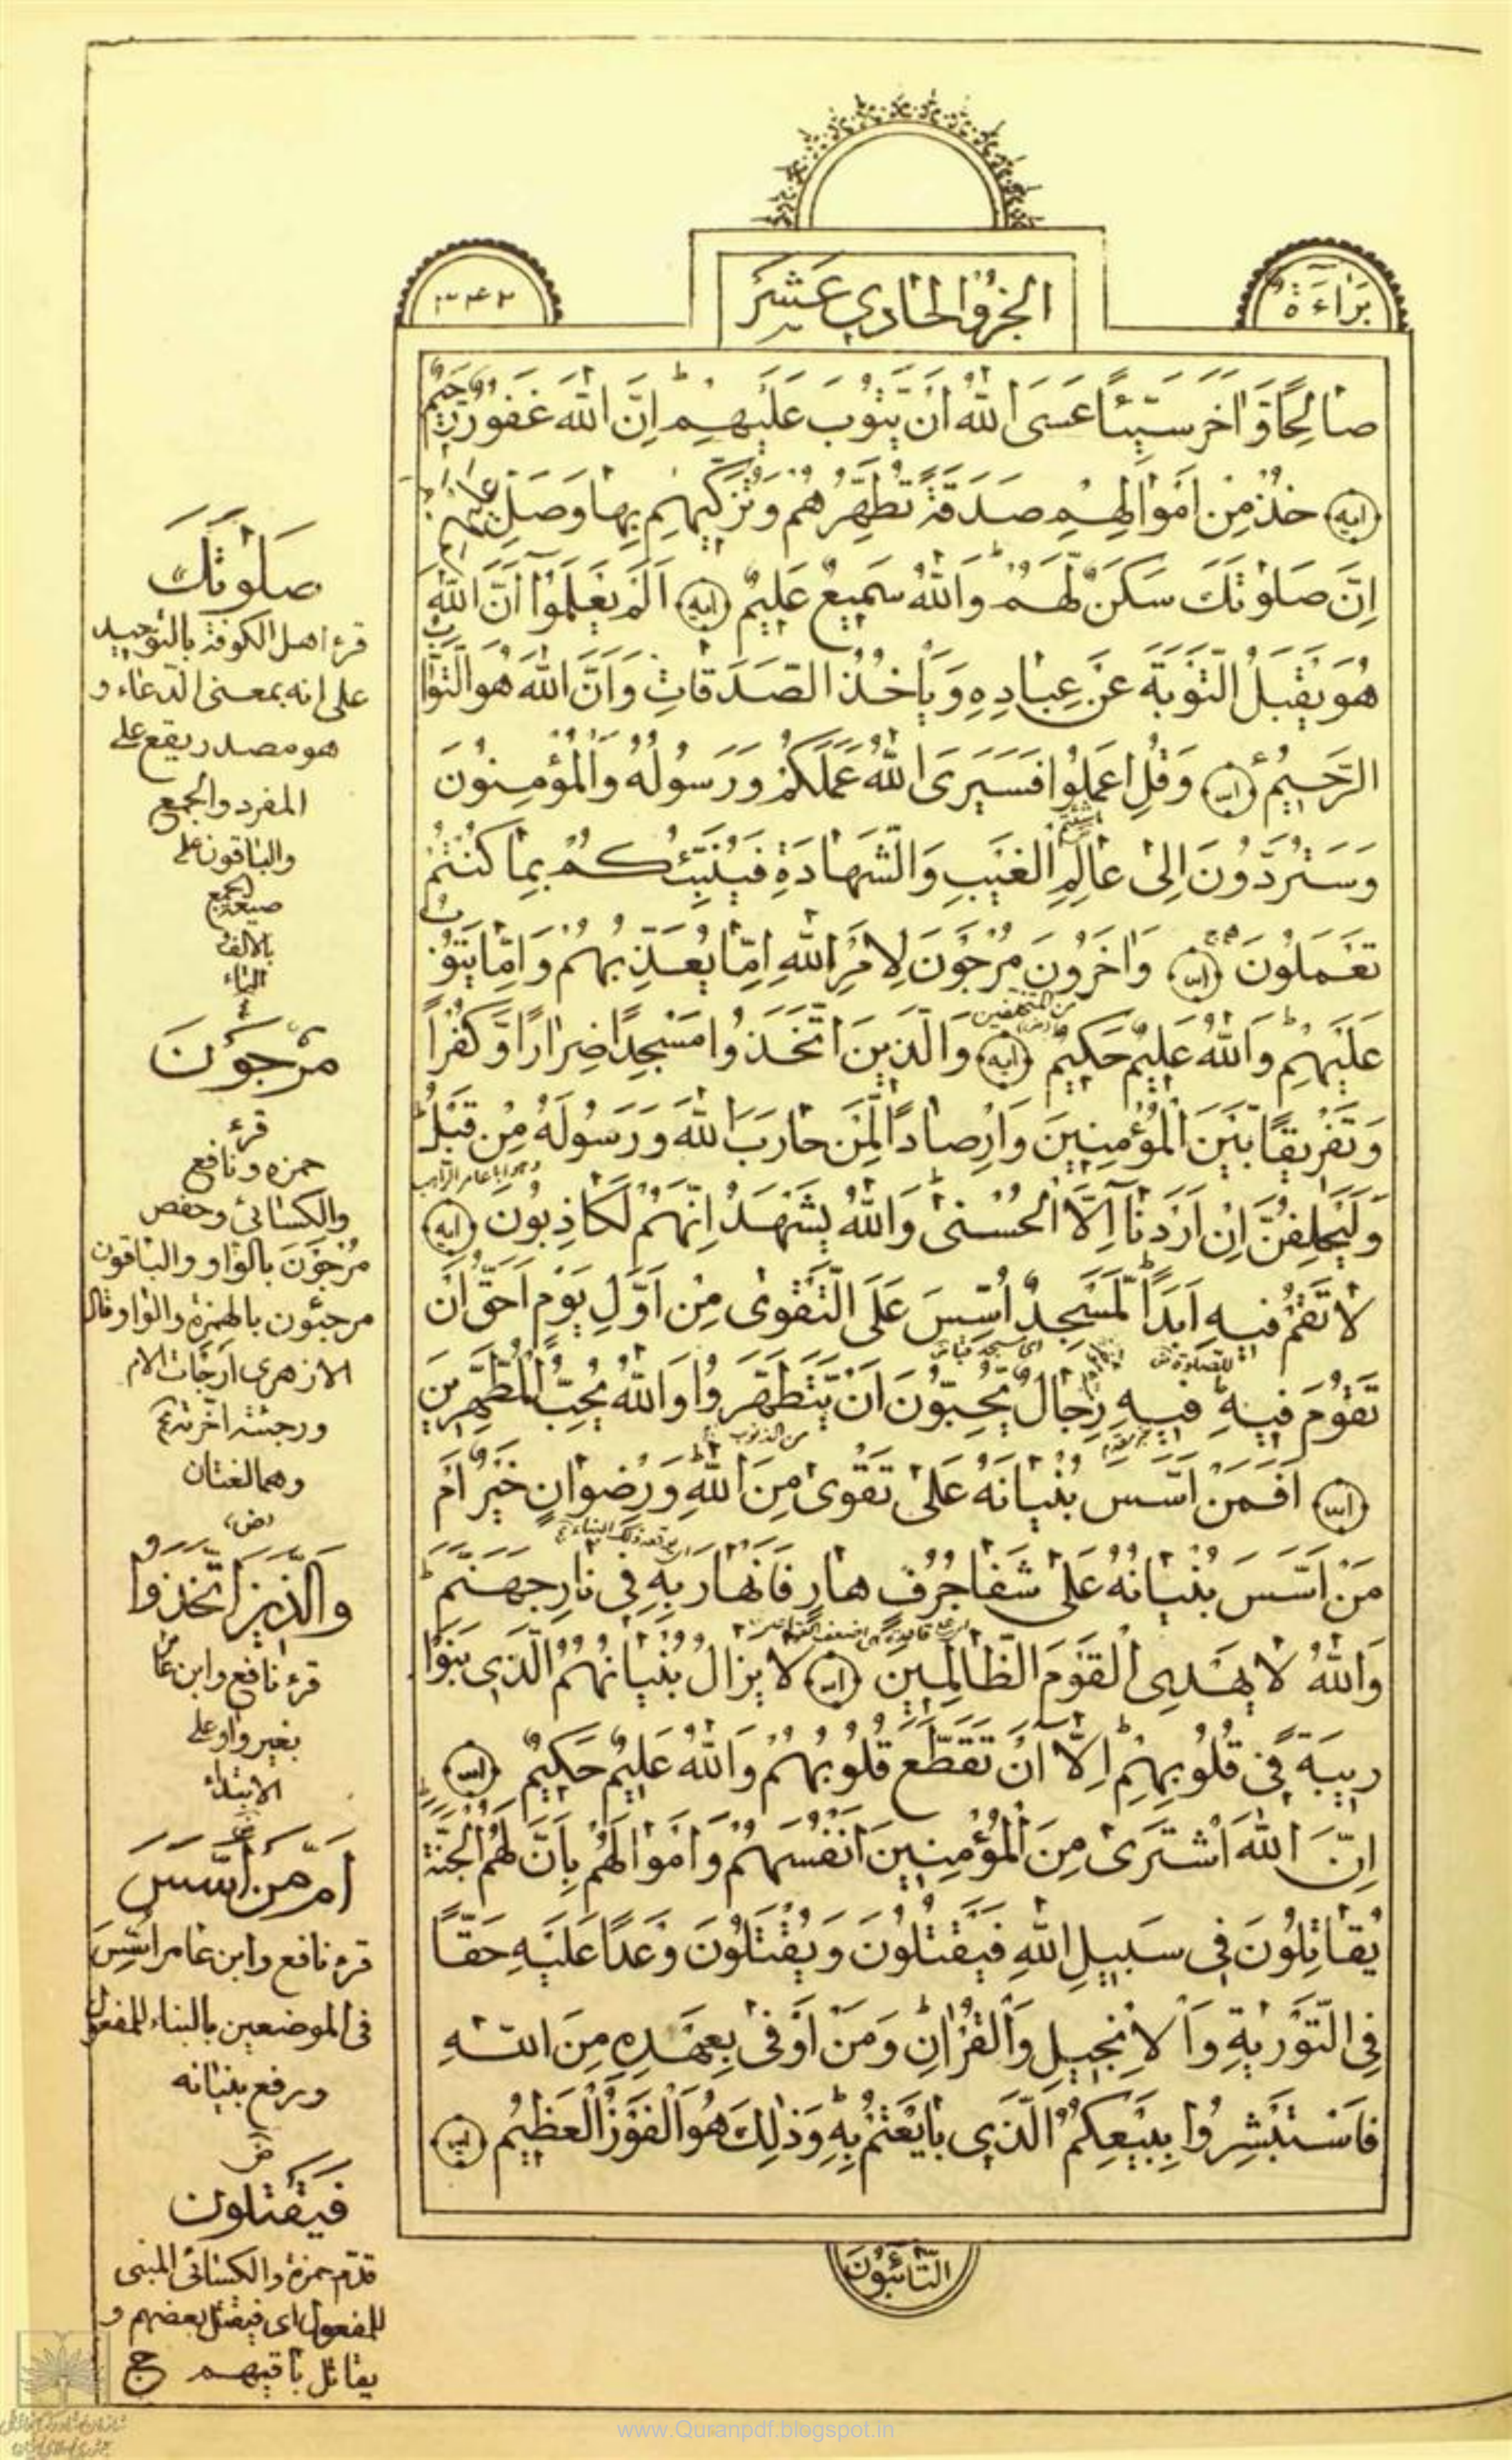 بَرَاءَةٌ
الجزؤ الحادي عَشَرَ
٣٤٢
صالِحًا وَّاٰخَرَ سَيِّئًا عَسَى اللّٰهُ اَنْ يَّتُوْبَ عَلَيْهِمْ ؕ اِنَّ اللّٰهَ غَفُوْرٌ رَّحِيْمٌ
خُذْ مِنْ اَمْوَالِهِمْ صَدَقَةً تُطَهِّرُهُمْ وَتُزَكِّيْهِمْ بِهَا وَصَلِّ عَلَيْهِمْ
اِنَّ صَلٰوتَكَ سَكَنٌ لَّهُمْ ؕ وَاللّٰهُ سَمِيْعٌ عَلِيْمٌ اَلَمْ يَعْلَمُوْٓا اَنَّ اللّٰهَ
هُوَ يَقْبَلُ التَّوْبَةَ عَنْ عِبَادِهٖ وَيَاْخُذُ الصَّدَقَاتِ وَاَنَّ اللّٰهَ هُوَ التَّوَّابُ
الرَّحِيْمُ وَقُلِ اعْمَلُوْا فَسَيَرَى اللّٰهُ عَمَلَكُمْ وَرَسُوْلُهٗ وَالْمُؤْمِنُوْنَ
وَسَتُرَدُّوْنَ اِلٰى عَالِمِ الْغَيْبِ وَالشَّهَادَةِ فَيُنَبِّئُكُمْ بِمَا كُنْتُمْ
تَعْمَلُوْنَ وَاٰخَرُوْنَ مُرْجَوْنَ لِاَمْرِ اللّٰهِ اِمَّا يُعَذِّبُهُمْ وَاِمَّا يَتُوْبُ
من المتخلفين
عَلَيْهِمْ ؕ وَاللّٰهُ عَلِيْمٌ حَكِيْمٌ وَالَّذِيْنَ اتَّخَذُوْا مَسْجِدًا ضِرَارًا وَّكُفْرًا
وَتَفْرِيْقًا بَيْنَ الْمُؤْمِنِيْنَ وَاِرْصَادًا لِّمَنْ حَارَبَ اللّٰهَ وَرَسُوْلَهٗ مِنْ قَبْلُ ؕ
وَلَيَحْلِفُنَّ اِنْ اَرَدْنَآ اِلَّا الْحُسْنٰى ؕ وَاللّٰهُ يَشْهَدُ اِنَّهُمْ لَكَاذِبُوْنَ
لَا تَقُمْ فِيْهِ اَبَدًا ؕ لَمَسْجِدٌ اُسِّسَ عَلَى التَّقْوٰى مِنْ اَوَّلِ يَوْمٍ اَحَقُّ اَنْ
للصلوة
اى مسجد قبا
تَقُوْمَ فِيْهِ ؕ فِيْهِ رِجَالٌ يُّحِبُّوْنَ اَنْ يَّتَطَهَّرُوْا وَاللّٰهُ يُحِبُّ الْمُطَّهِّرِيْنَ
من الذنوب
اَفَمَنْ اَسَّسَ بُنْيَانَهٗ عَلٰى تَقْوٰى مِنَ اللّٰهِ وَرِضْوَانٍ خَيْرٌ اَمْ
مَّنْ اَسَّسَ بُنْيَانَهٗ عَلٰى شَفَا جُرُفٍ هَارٍ فَانْهَارَ بِهٖ فِىْ نَارِ جَهَنَّمَ ؕ
وَاللّٰهُ لَا يَهْدِى الْقَوْمَ الظَّالِمِيْنَ لَا يَزَالُ بُنْيَانُهُمُ الَّذِىْ بَنَوْا
رِيْبَةً فِىْ قُلُوْبِهِمْ ؕ اِلَّآ اَنْ تَقَطَّعَ قُلُوْبُهُمْ وَاللّٰهُ عَلِيْمٌ حَكِيْمٌ
اِنَّ اللّٰهَ اشْتَرٰى مِنَ الْمُؤْمِنِيْنَ اَنْفُسَهُمْ وَاَمْوَالَهُمْ بِاَنَّ لَهُمُ الْجَنَّةَ
يُقَاتِلُوْنَ فِىْ سَبِيْلِ اللّٰهِ فَيَقْتُلُوْنَ وَيُقْتَلُوْنَ وَعْدًا عَلَيْهِ حَقًّا
فِى التَّوْرٰيةِ وَالْاِنْجِيْلِ وَالْقُرْاٰنِ ؕ وَمَنْ اَوْفٰى بِعَهْدِهٖ مِنَ اللّٰهِ
فَاسْتَبْشِرُوْا بِبَيْعِكُمُ الَّذِىْ بَايَعْتُمْ بِهٖ ؕ وَذٰلِكَ هُوَ الْفَوْزُ الْعَظِيْمُ
التَّائِبُوْنَ
صَلٰوتَكَ
قرء اهل الكوفة بالتوحيد
على انه بمعنى الدعاء و
هو مصدر يقع على
المفرد والجمع
والباقون على
صيغة الجمع
بالالف
التاء
مُرْجَوْنَ
قرء
حمزه ونافع
والكسائى وحفص
مُرْجَوْنَ بالواو والباقون
مرجئون بالهمزة والواو قال
الازهرى ارجات الامر
ورجيته اخرته
وهما لغتان
وَالَّذِيْنَ اتَّخَذُوْا
قرء نافع وابن عامر
بغير واو على
الابتداء
اَمْ مَّنْ اَسَّسَ
قرء نافع وابن عامر اُسِّسَ
فى الموضعين بالبناء للمفعول
ورفع بنيانه
فَيَقْتُلُوْنَ
قدّم حمزة والكسائى المبنى
للمفعول اى فيقتل بعضهم و
يقاتل باقيهم
www.Quranpdf.blogspot.in